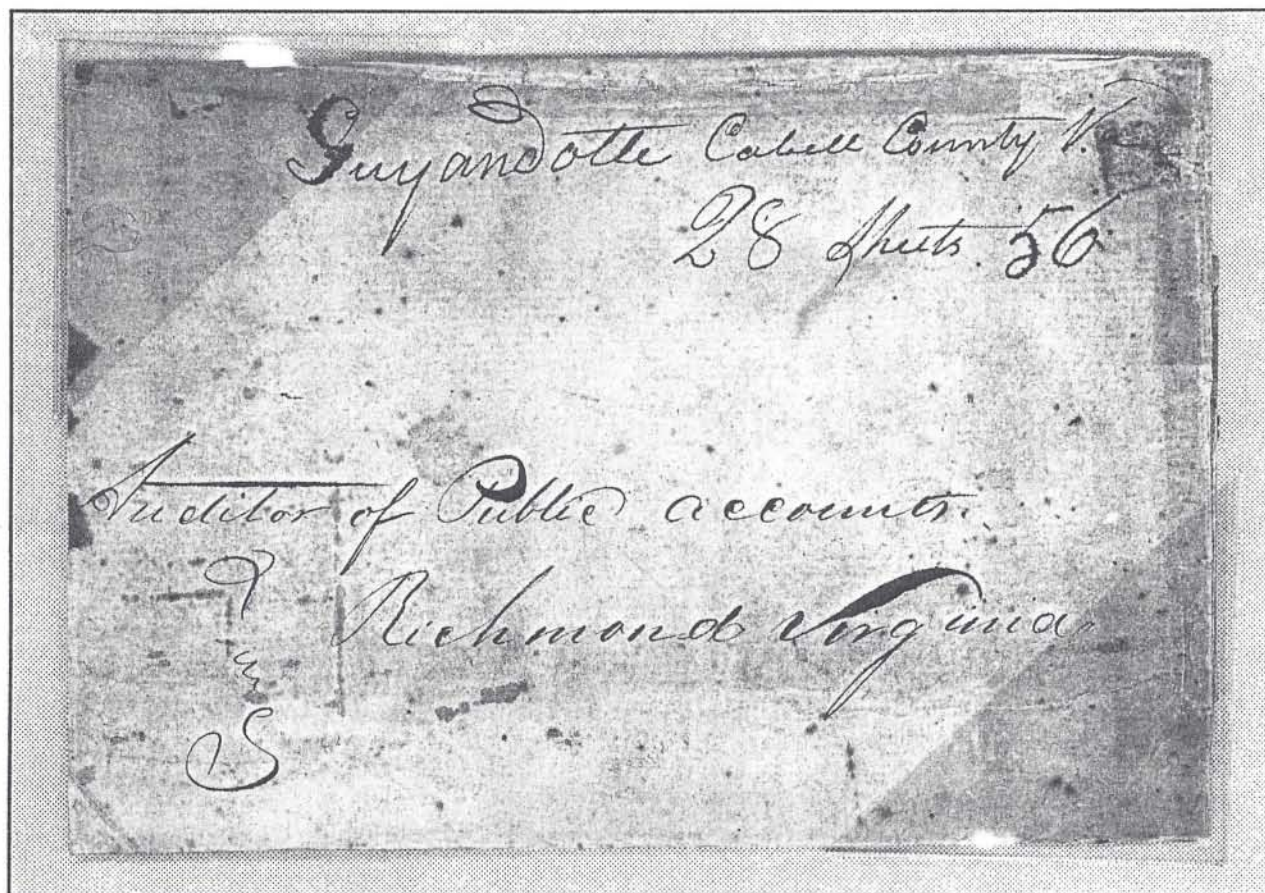 Guyandotte Cabell County Va
28 sheets. 56
Auditor of Public accounts.
Richmond Virginia